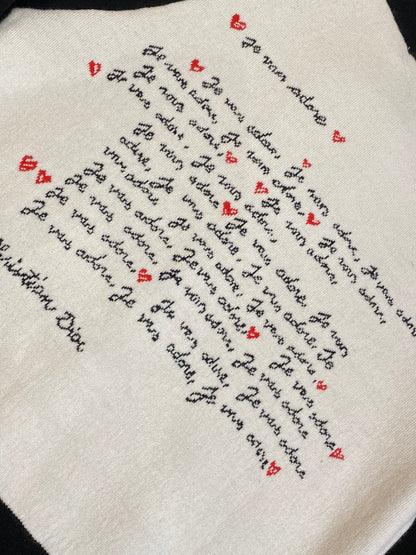 Je vous adore
Je vous adore, Je vous adore, Je vous adore, Je vous adore
Je vous adore, Je vous adore, Je vous adore,
Je vous adore, Je vous adore,
Je vous adore, Je vous adore, Je vous adore, Je vous
adore, Je vous adore, Je vous adore, Je
vous adore, Je vous adore, Je vous adore
Je vous adore, Je vous adore, Je vous adore
Je vous adore, Je vous adore, Je vous adore
Je vous adore, Je vous adore, Je vous adore
Christian Dior